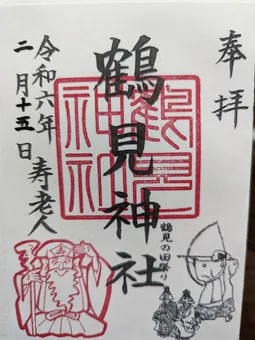 奉拝
鶴見神社
鶴見の田祭り
寿老人
令和六年
二月十五日